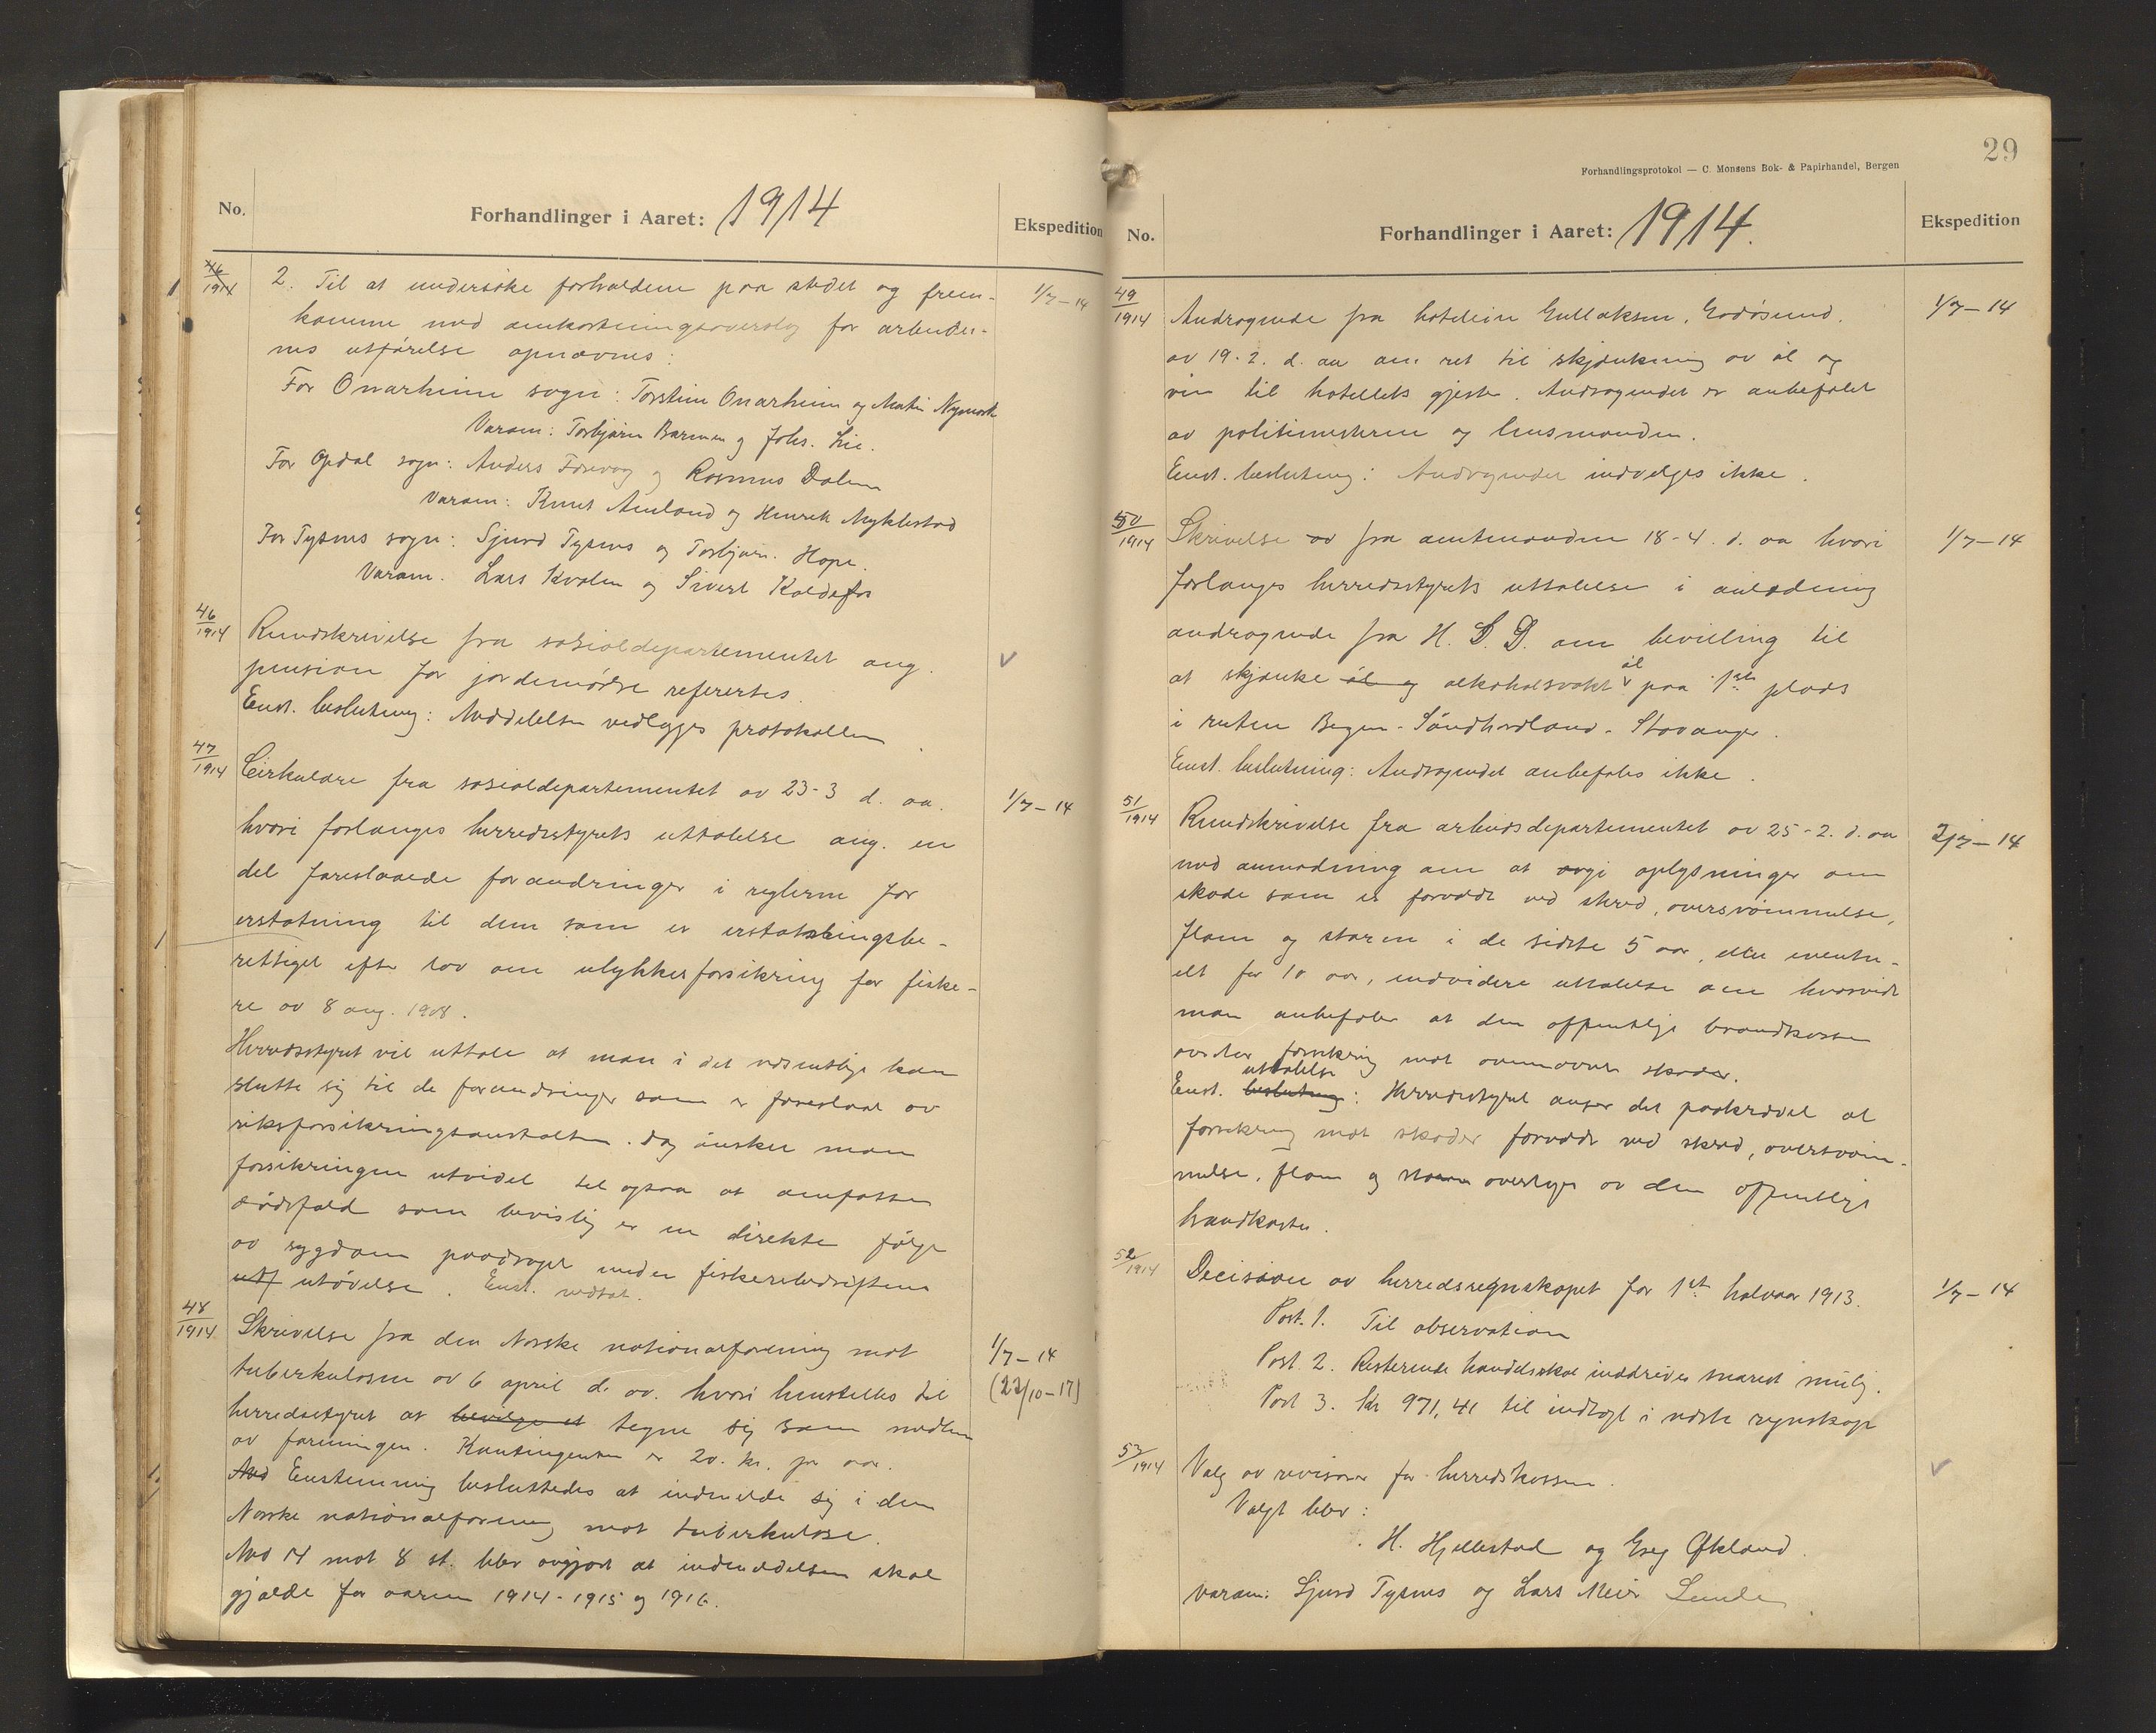 No.
Forhandlinger i Aaret: 1914
Ekspedition
46/1914
2. Til at undersøke forholdene paa stedet og frem-
1/7-14
komme med omkostningsoverslag for arbeider-
nes utførelse opnævnes:
For Onarheim sogn: Torstein Onarheim og Martin Nymark
Varam: Torbjørn Barmen og Johs. Lie.
For Opdal sogn: Anders og Rasmus Dalen
Varam: Knut Amland og Henrik Myklestad
For Tysnes sogn: Sjurd Tysnes og Torbjørn Hope.
Varam. Lars Kvalen og Sivert Kaldefos
46/1914
Rundskrivelse fra sosialdepartementet ang.
pension for jordemødre refertes.
Enst. beslutning: Meddelelsen vedlægges protokollen.
47/1914
Cirkulære fra sosialdepartementet av 23-3 d. aa.
1/7-14
hvori forlanges herredsstyrets uttalelse ang. en
del foreslaaede forandringer i reglerne for
erstatning til dem som er erstatningsbe-
rettiget efter lov om ulykkesforsikring for fiske-
re av 8 aug. 1908.
Herredsstyret vil uttale at man i det væsentlige kan
slutte sig til de forandringer som er foreslaat av
riksforsikringsanstalten. Dog ønsker man
forsikringen utvidet til ogsaa at omfatte
dødsfald som bevislig er en direkte følge
av sygdom paadraget under fiskeribedriftens
utf utøvelse. Enst. vedtat.
48/1914
Skrivelse fra den Norske nationalforening mot
1/7-14
tuberkulosen av 6 april d. aa. hvori henstilles til
(23/10-17)
herredsstyret at bevilge et tegne sig som medlem
av foreningen. Kontingenten er 20. kr. pr aar.
Med Enstemmig besluttedes at indmelde sig i den
Norske nationalforening mot tuberkulose.
Med 14 mot 8 st. blev avgjort at indmeldelsen skal
gjælde for aarene 1914-1915 og 1916.
29
Forhandlingsprotokol — C. Monsens Bok- & Papirhandel, Bergen
No.
Forhandlinger i Aaret: 1914.
Ekspedition
49/1914
Andragende fra hoteleier Gullaksen, Godøsund.
1/7-14
av 19-2. d. aa om ret til skjænkning av øl og
vin til hotellets gjester. Andragendet er anbefalet
av politimesteren og lensmanden.
Enst. beslutning: Andragendet indvilges ikke.
50/1914
Skrivelse av fra amtmanden 18-4. d. aa hvori
1/7-14
forlanges herredsstyrets uttalelse i anledning
andragende fra H. S. D. om bevilling til
at skjænke øl og alkoholsvakt øl paa 1ste plads
i ruten Bergen-Søndhordland-Stavanger.
Enst. beslutning: Andragendet anbefales ikke.
51/1914
Rundskrivelse fra arbeidsdepartementet av 25-2. d. aa
2/7-14
med anmodning om at avgi oplysninger om
skade som er forvoldt ved skred, oversvømmelse,
flom og storm i de sidste 5 aar, eller eventu-
elt for 10 aar, endvidere uttalelse om hvorvidt
man anbefaler at den offentlige brandkasse
overtar forsikring mot ovennævnte skader.
Enst. beslutning uttalelse: Herredsstyret anser det paakrævet at
forsikring mot skader forvoldt ved skred, oversvøm-
melse, flom og storm overtages av den offentlige
brandkasse.
52/1914
Decision av herredsregnskapet for 1st halvaar 1913.
1/7-14
Post. 1. Til observation
Post 2. Resterende handelsskat inddrives snarest mulig.
Post 3. Kr 971,41 til indtægt i næste regnskap
53/1914
Valg av revisorer for herredskassen.
Valgt blev:
H. Hjellestad og Greg Økland.
Varam: Sjurd Tysnes og Lars Meier Lunde